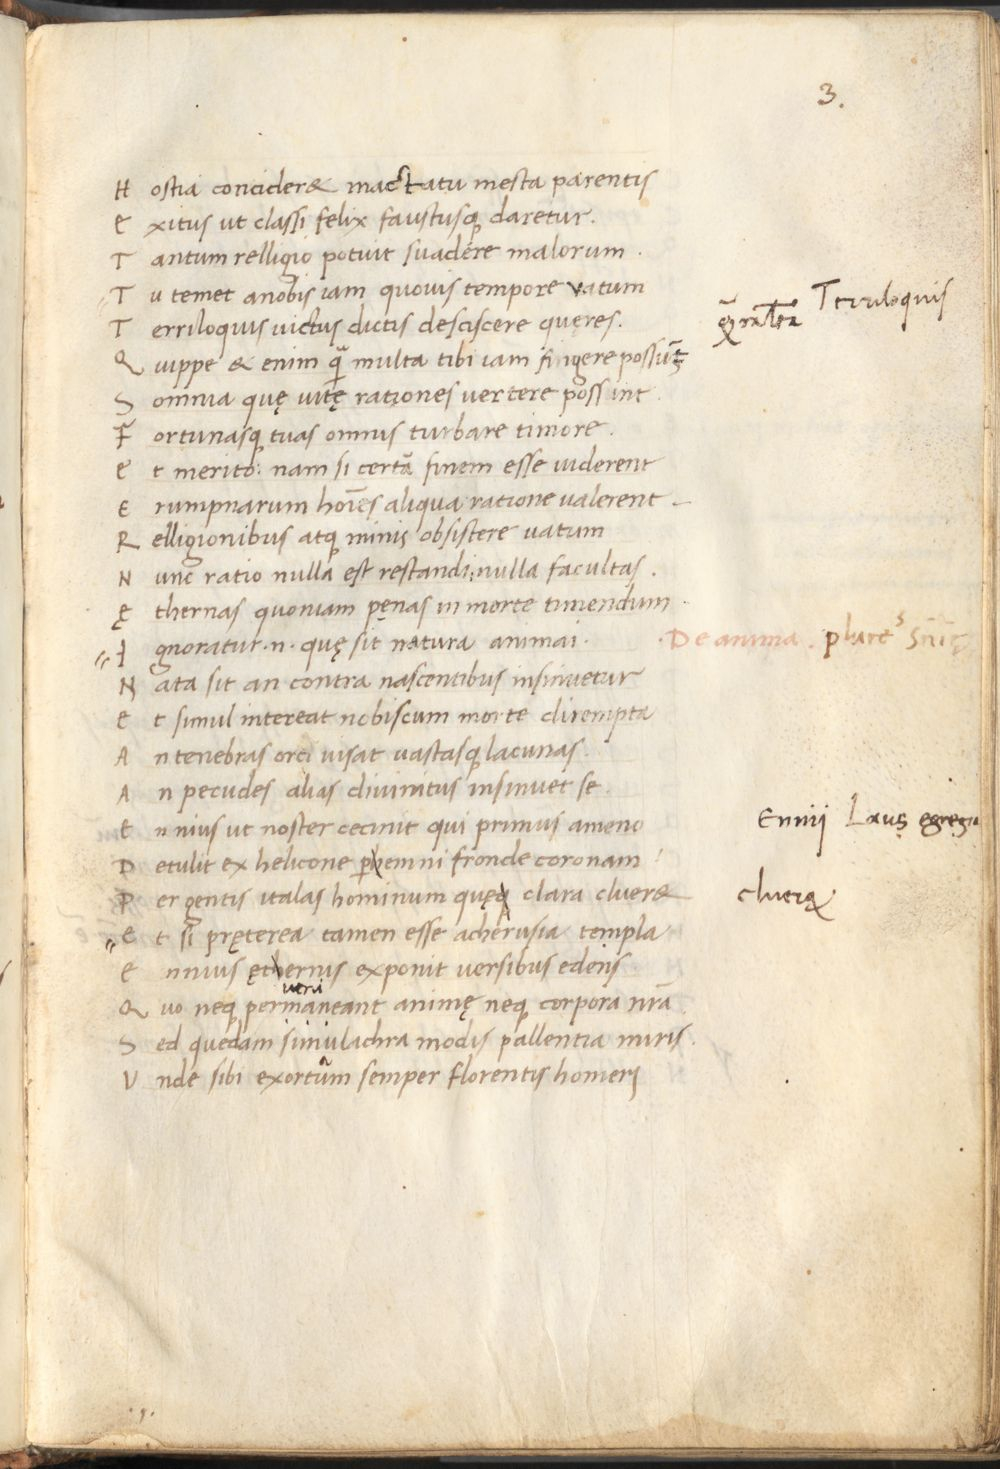 3.
H ostia conciderę mactatu mesta parentis
E xitus ut classi felix faustusq; daretur.
T antum relligio potuit suadere malorum.
T u temet anobis iam quovis tempore vatum
T erriloquis victus dictis desciscere queres.
Terriloquis
Q uippe & enim q̄ multa tibi iam fingere possūt
S omnia quę vitę rationes vertere possint.
F ortunasq; tuas omnis turbare timore.
E t merito: nam si certā finem esse viderent
E rumpnarum hoīes aliqua ratione valerent
R elligionibus atq; minis obsistere vatum
N unc ratio nulla est restandi: nulla facultas.
Ę thernas quoniam pęnas in morte timendum.
I gnoratur .n. quę sit natura animai.
De anima. plures snīę
N ata sit an contra nascentibus insinuetur
E t simul intereat nobiscum morte dirempta
A n tenebras orci visat vastasq; lacunas.
A n pecudes alias divinitus insinuet se.
E nnius ut noster cecinit qui primus ameno
Ennij Laus egregia
D etulit ex helicone phemni fronde coronam
P er gentis italas hominum quęq clara cluer&
cluer&
E t si pręterea tamen esse acherusia templa
E nnius ęthernis exponit versibus edens
veni
Q uo neq; permaneant animę neq; corpora nrā.
S ed quedam simulachra modis pallentia miris.
U nde sibi exortam semper florentis homeri